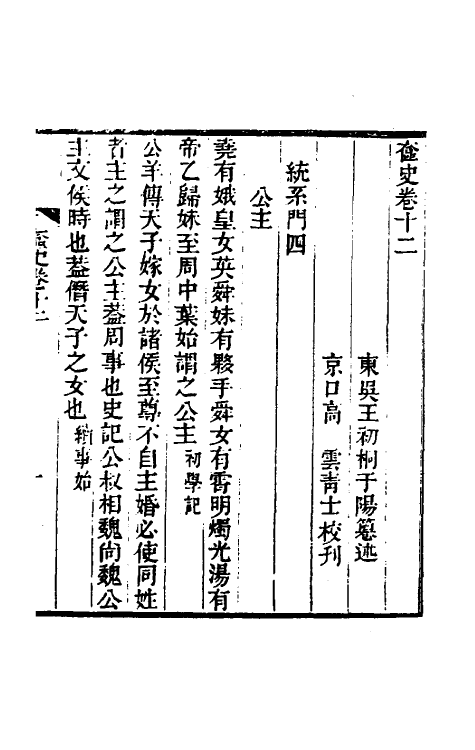 奩史卷十二
東吳王初桐于陽纂述
京口高 雲青士校刊
統系門四
公主
堯有娥皇女英舜妹有夥手舜女有霄明燭光湯有
帝乙歸妹至周中葉始謂之公主初學記
公羊傳天子嫁女於諸侯至尊不自主婚必使同姓
者主之謂之公主葢周事也史記公叔相魏尙魏公
主文侯時也葢僭天子之女也續事始
奩史卷十二
一